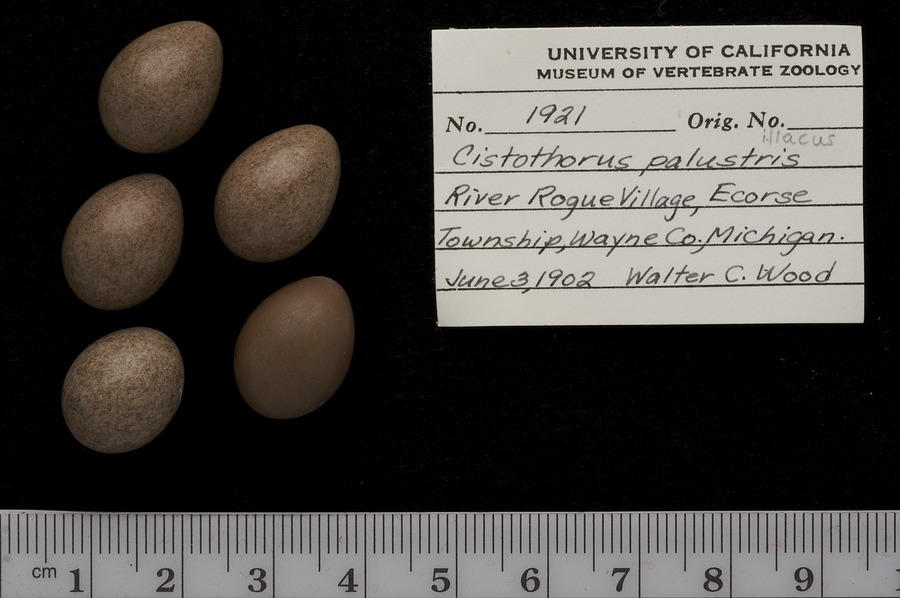 UNIVERSITY OF CALIFORNIA
MUSEUM OF VERTEBRATE ZOOLOGY
No. 1921 Orig. No.
illacus
Cistothorus palustris
River Rogue Village, Ecorse
Township, Wayne Co., Michigan.
June 3, 1902 Walter C. Wood
cm 1 2 3 4 5 6 7 8 9 1